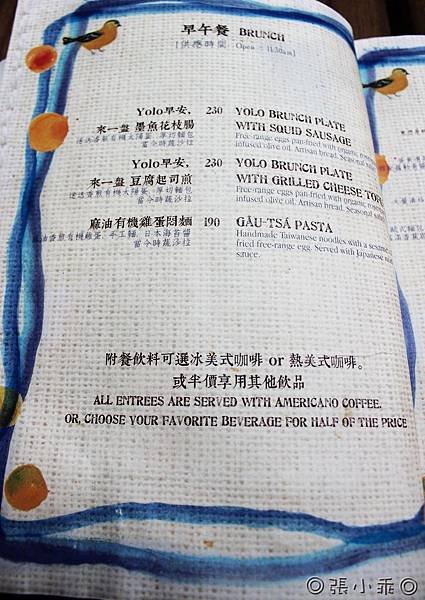 早午餐 BRUNCH
[供應時間: Open ~ 11:30am]
Yolo早安, 230 YOLO BRUNCH PLATE
來一盤 墨魚花枝腸 WITH SQUID SAUSAGE
迷迭香煎有機太陽蛋, 厚切麵包 Free-range eggs pan-fried with organic,
當令時蔬沙拉 infused olive oil. Artisan bread. Seasonal
Yolo早安, 230 YOLO BRUNCH PLATE
來一盤 豆腐起司煎 WITH GRILLED CHEESE TOFU
迷迭香煎有機太陽蛋, 厚切麵包 Free-range eggs pan-fried with organic,
當令時蔬沙拉 infused olive oil. Artisan bread. Seasonal
麻油有機雞蛋悶麵 190 GÂU-TSÁ PASTA
麻油香煎有機雞蛋, 手工麵, 日本海苔醬 Handmade Taiwanese noodles with a sesame
當令時蔬沙拉 fried free-range egg. Served with Japanese
sauce.
附餐飲料可選冰美式咖啡 or 熱美式咖啡。
或半價享用其他飲品
ALL ENTREES ARE SERVED WITH AMERICANO COFFEE.
OR, CHOOSE YOUR FAVORITE BEVERAGE FOR HALF OF THE PRICE
◎張小乖◎